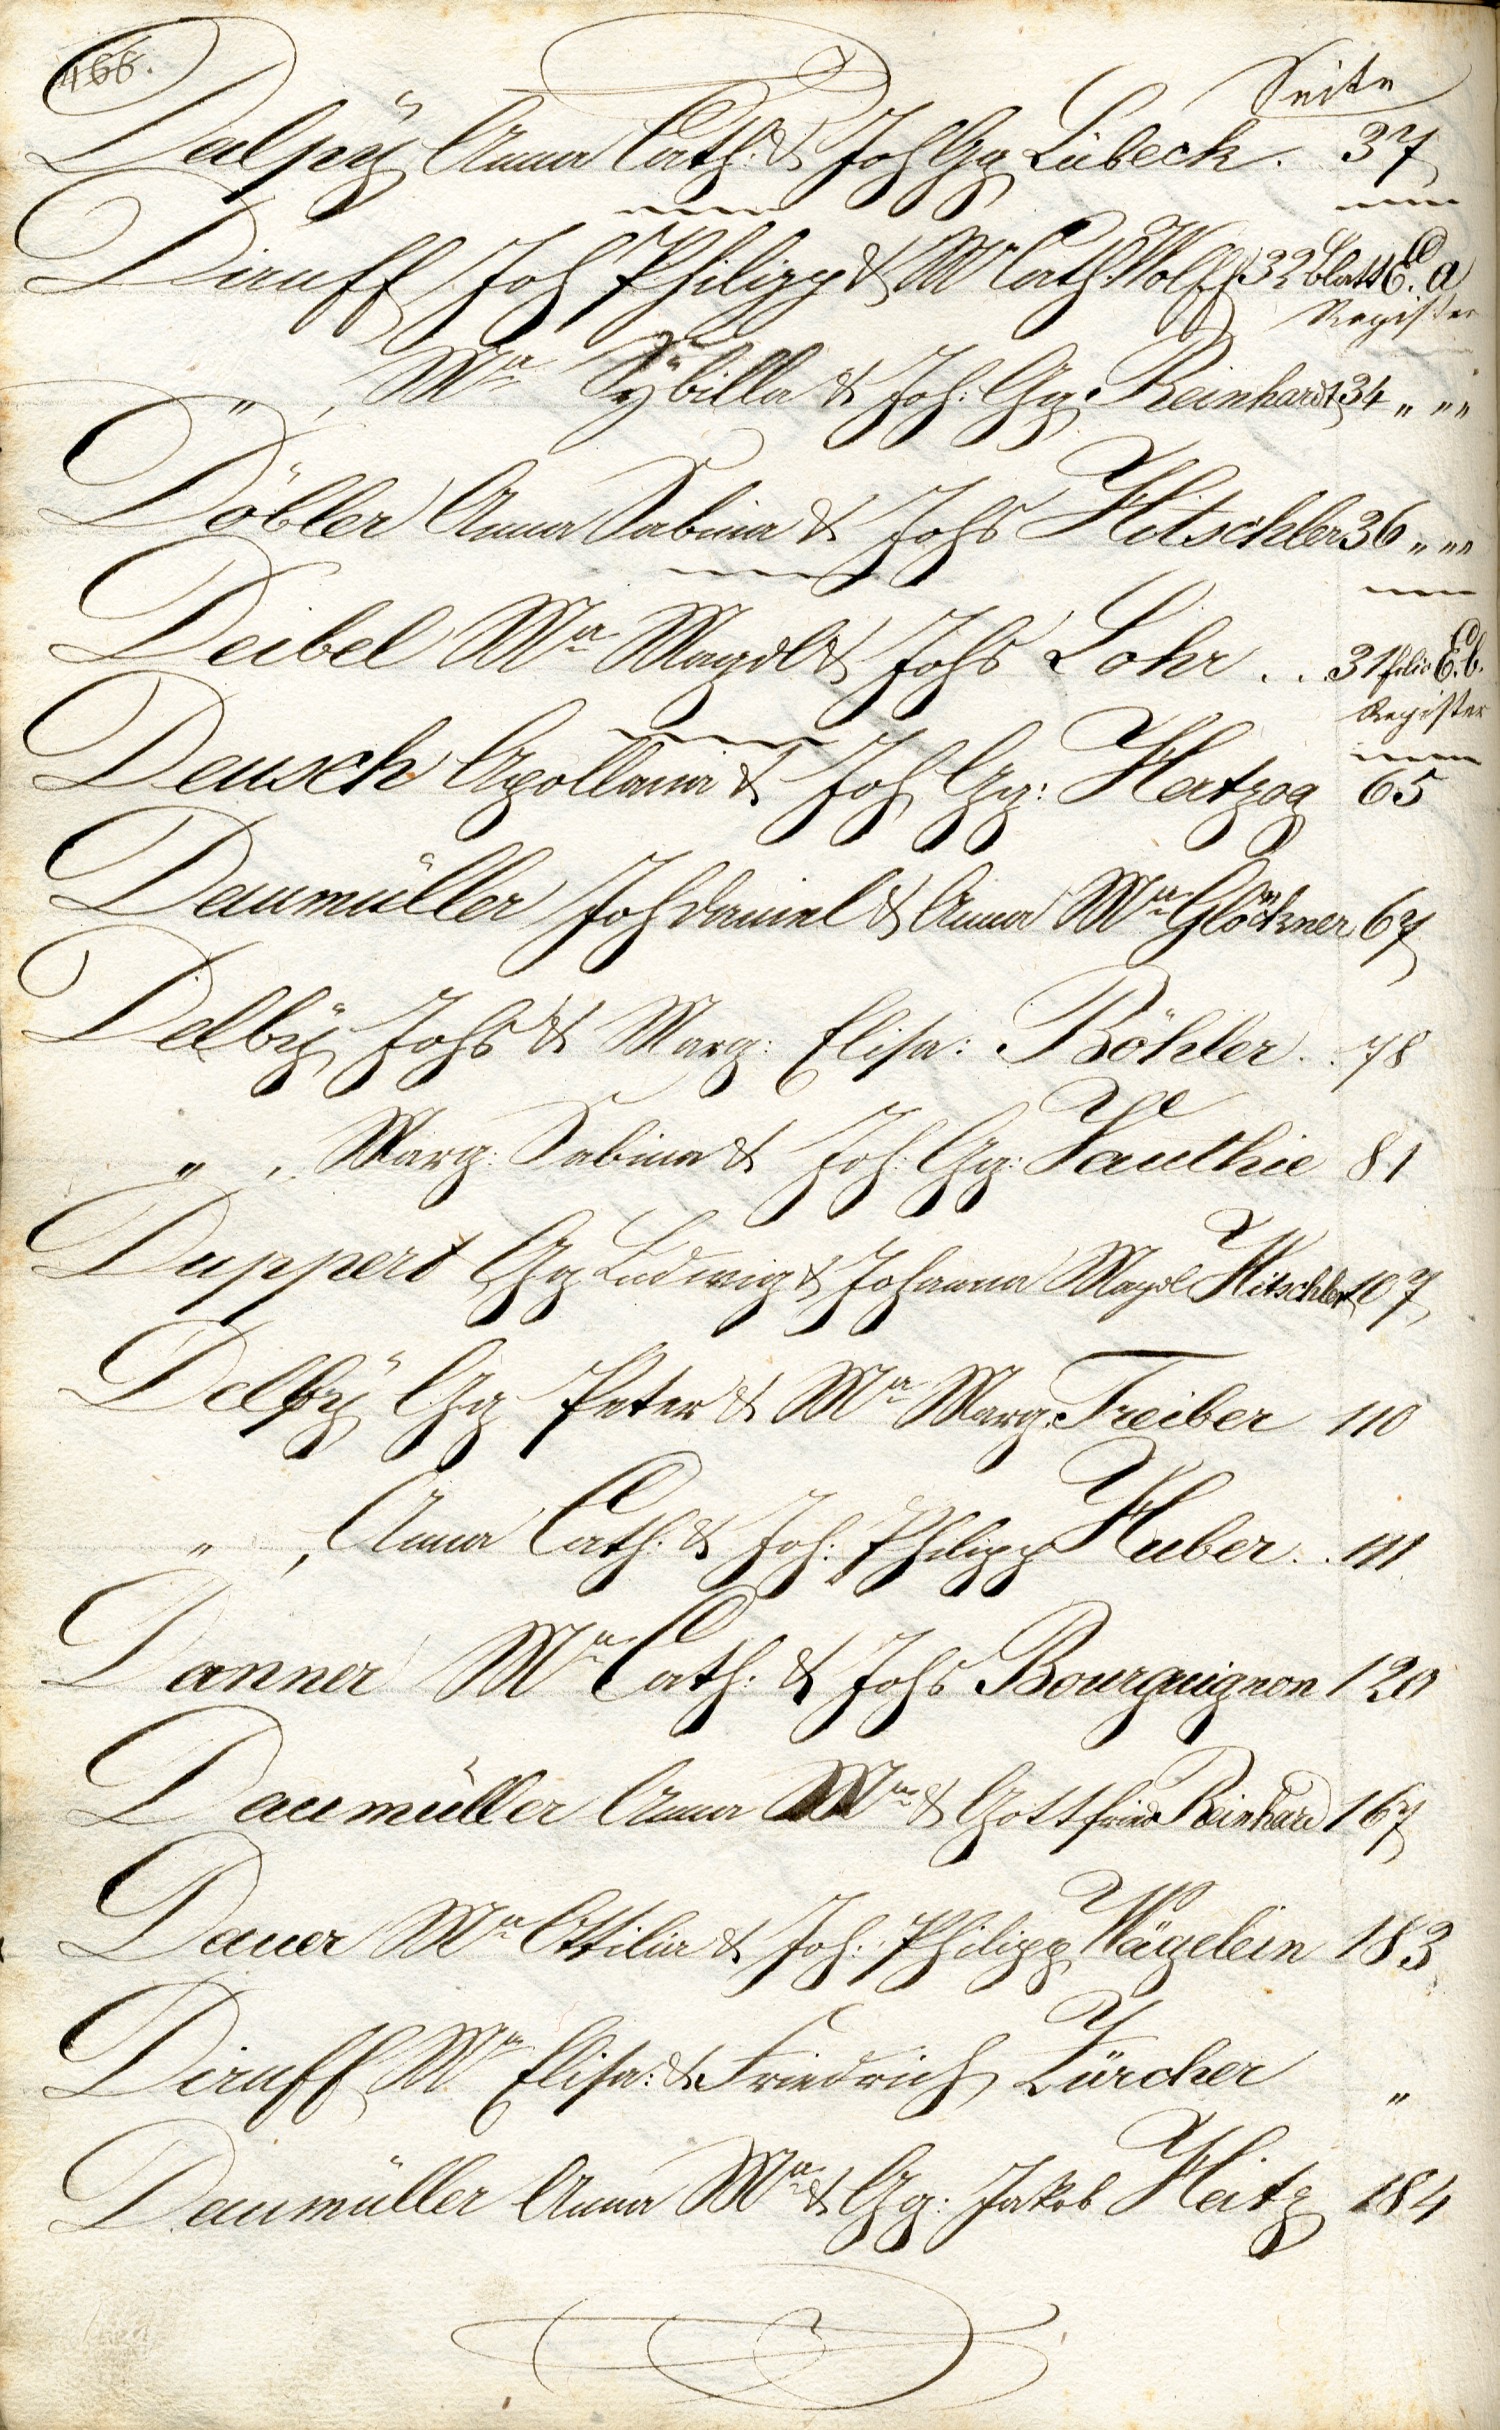 466.
Seite
Delpÿ Anna Cath: & Joh Gg Lübeck. 37
Diruff Joh Philipp & Mr Cath. Wolff 32 blatt C. a
Register
" , Mᵃ Sÿbilla & Joh: Gg: Reinhardt 34 " " "
Döbler Anna Sabina & Johs Hitschler 36 " " "
Deibel Mᵃ Magdl & Johs Lohr . . 31 folio C. b.
Register
Deusch Apollonia & Joh Gg: Hertzog 65
Daumüller Joh Daniel & Anna Mᵃ Glöckner 67
Delbÿ Johs & Marg: Elisa: Böhler . . 78
" , Marg: Sabina & Joh: Gg: Fauthie 81
Duppert Gg Ludwig & Johanna Magdl Hitschler 107
Delpÿ Gg Peter & Mᵃ Marg: Treiber 110
" , Anna Cath: & Joh: Philipp Huber . . 111
Danner Mᵃ Cath: & Johs Bourguignon 120
Daumüller Anna Mᵃ & Gottfried Reinhard 167
Dauer Mᵃ Ottilia & Joh: Philipp Wägelein 183
Diruff Mᵃ Elisa: & Friedrich Zürcher "
Daumüller Anna Mᵃ & Gg: Jakob Heitz 184